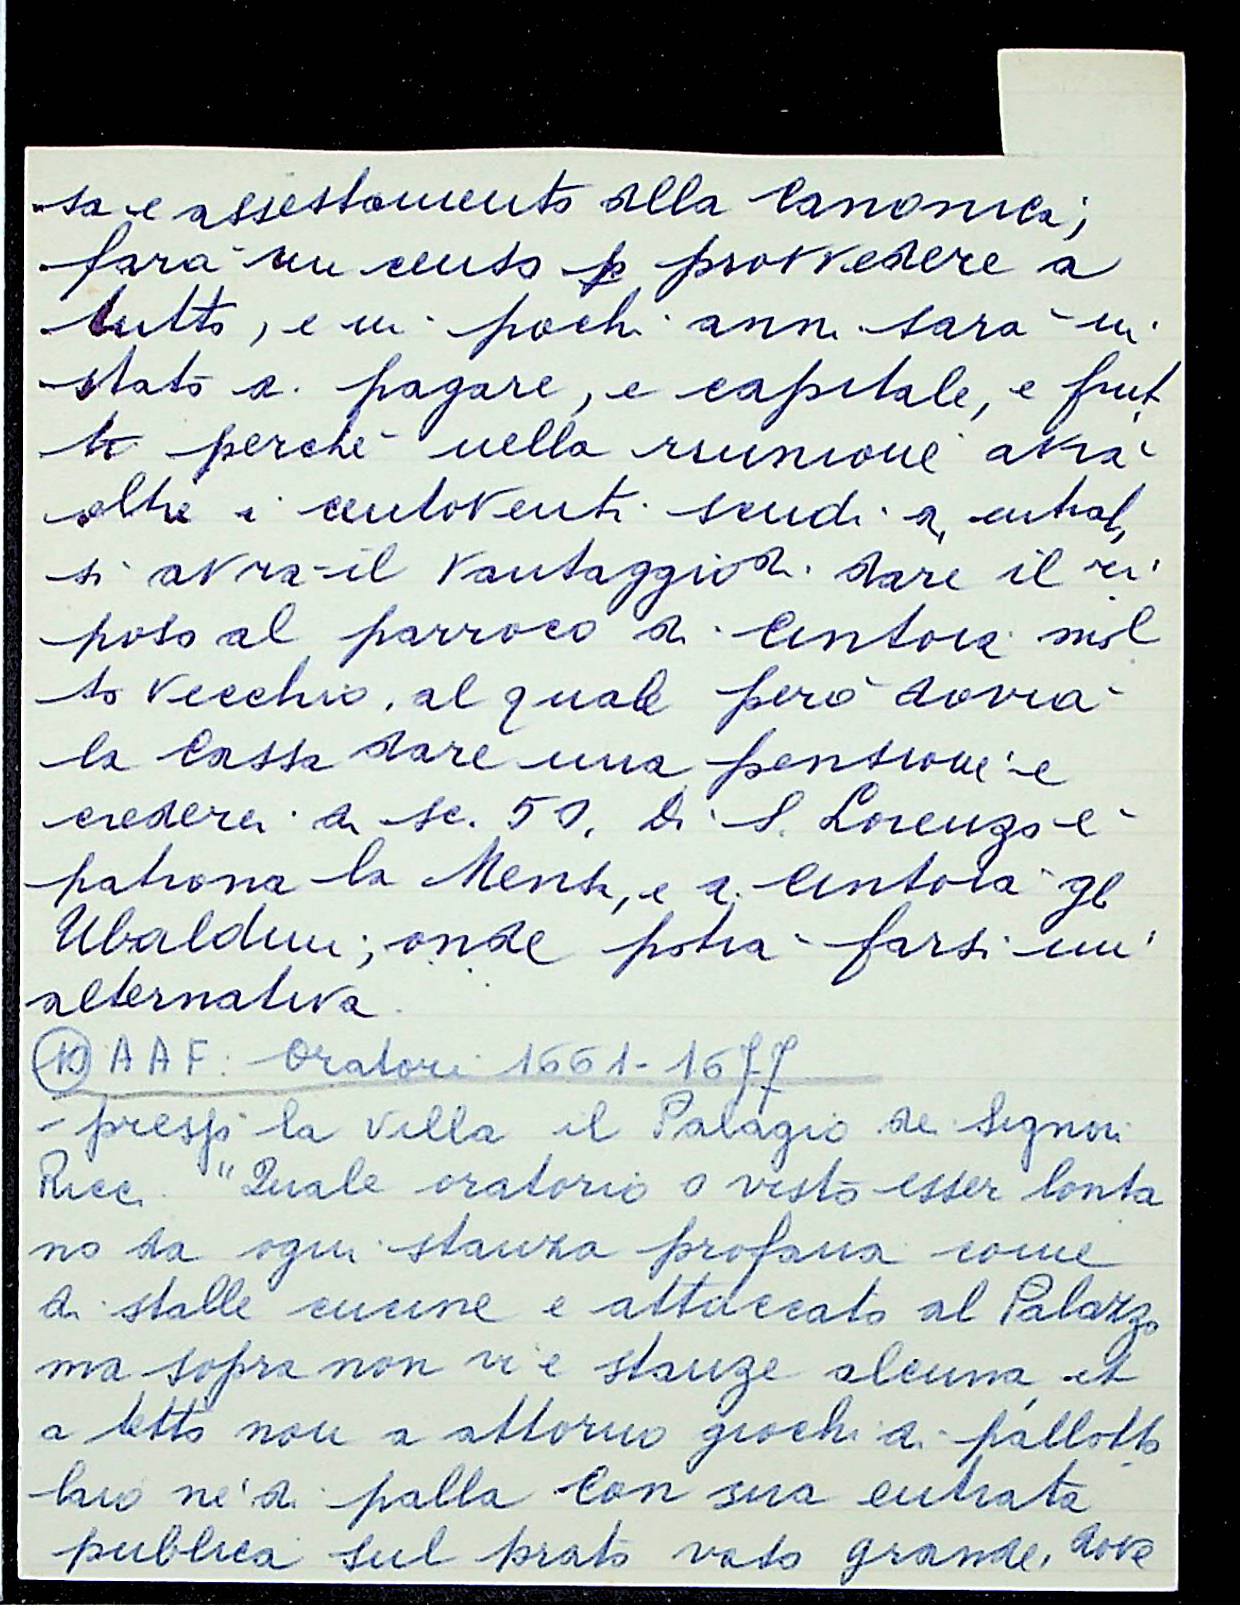 sa e assestamento della Canonica;
farà un censo p provvedere a
tutto, e in pochi anni sarà in
stato di pagare, e capitale, e frut
ti perché nella riunione avrà
oltre i centoventi scudi di entrat,
si avrà il vantaggio di dare il ri
poso al parroco di Cintoia mol
to vecchio, al quale però dovrà
la Cassa dare una pensione e
crederei di sc. 50. Di S. Lorenzo è
patrona la Mensa, e di Cintoia gl
Ubaldini; onde potrà farsi un'
alternativa.
10 AAF: Oratori 1661-1677
- presso la villa il Palagio de Signori
Ricci. "Quale oratorio o visto esser lonta
no da ogni stanza profana come
di stalle cucine e attaccato al Palazzo
ma sopra non vi è stanze alcuna et
a tetto non a attorno giochi di pallotto
laio né di palla con sua entrata
publica sul prato vasto grande, dove